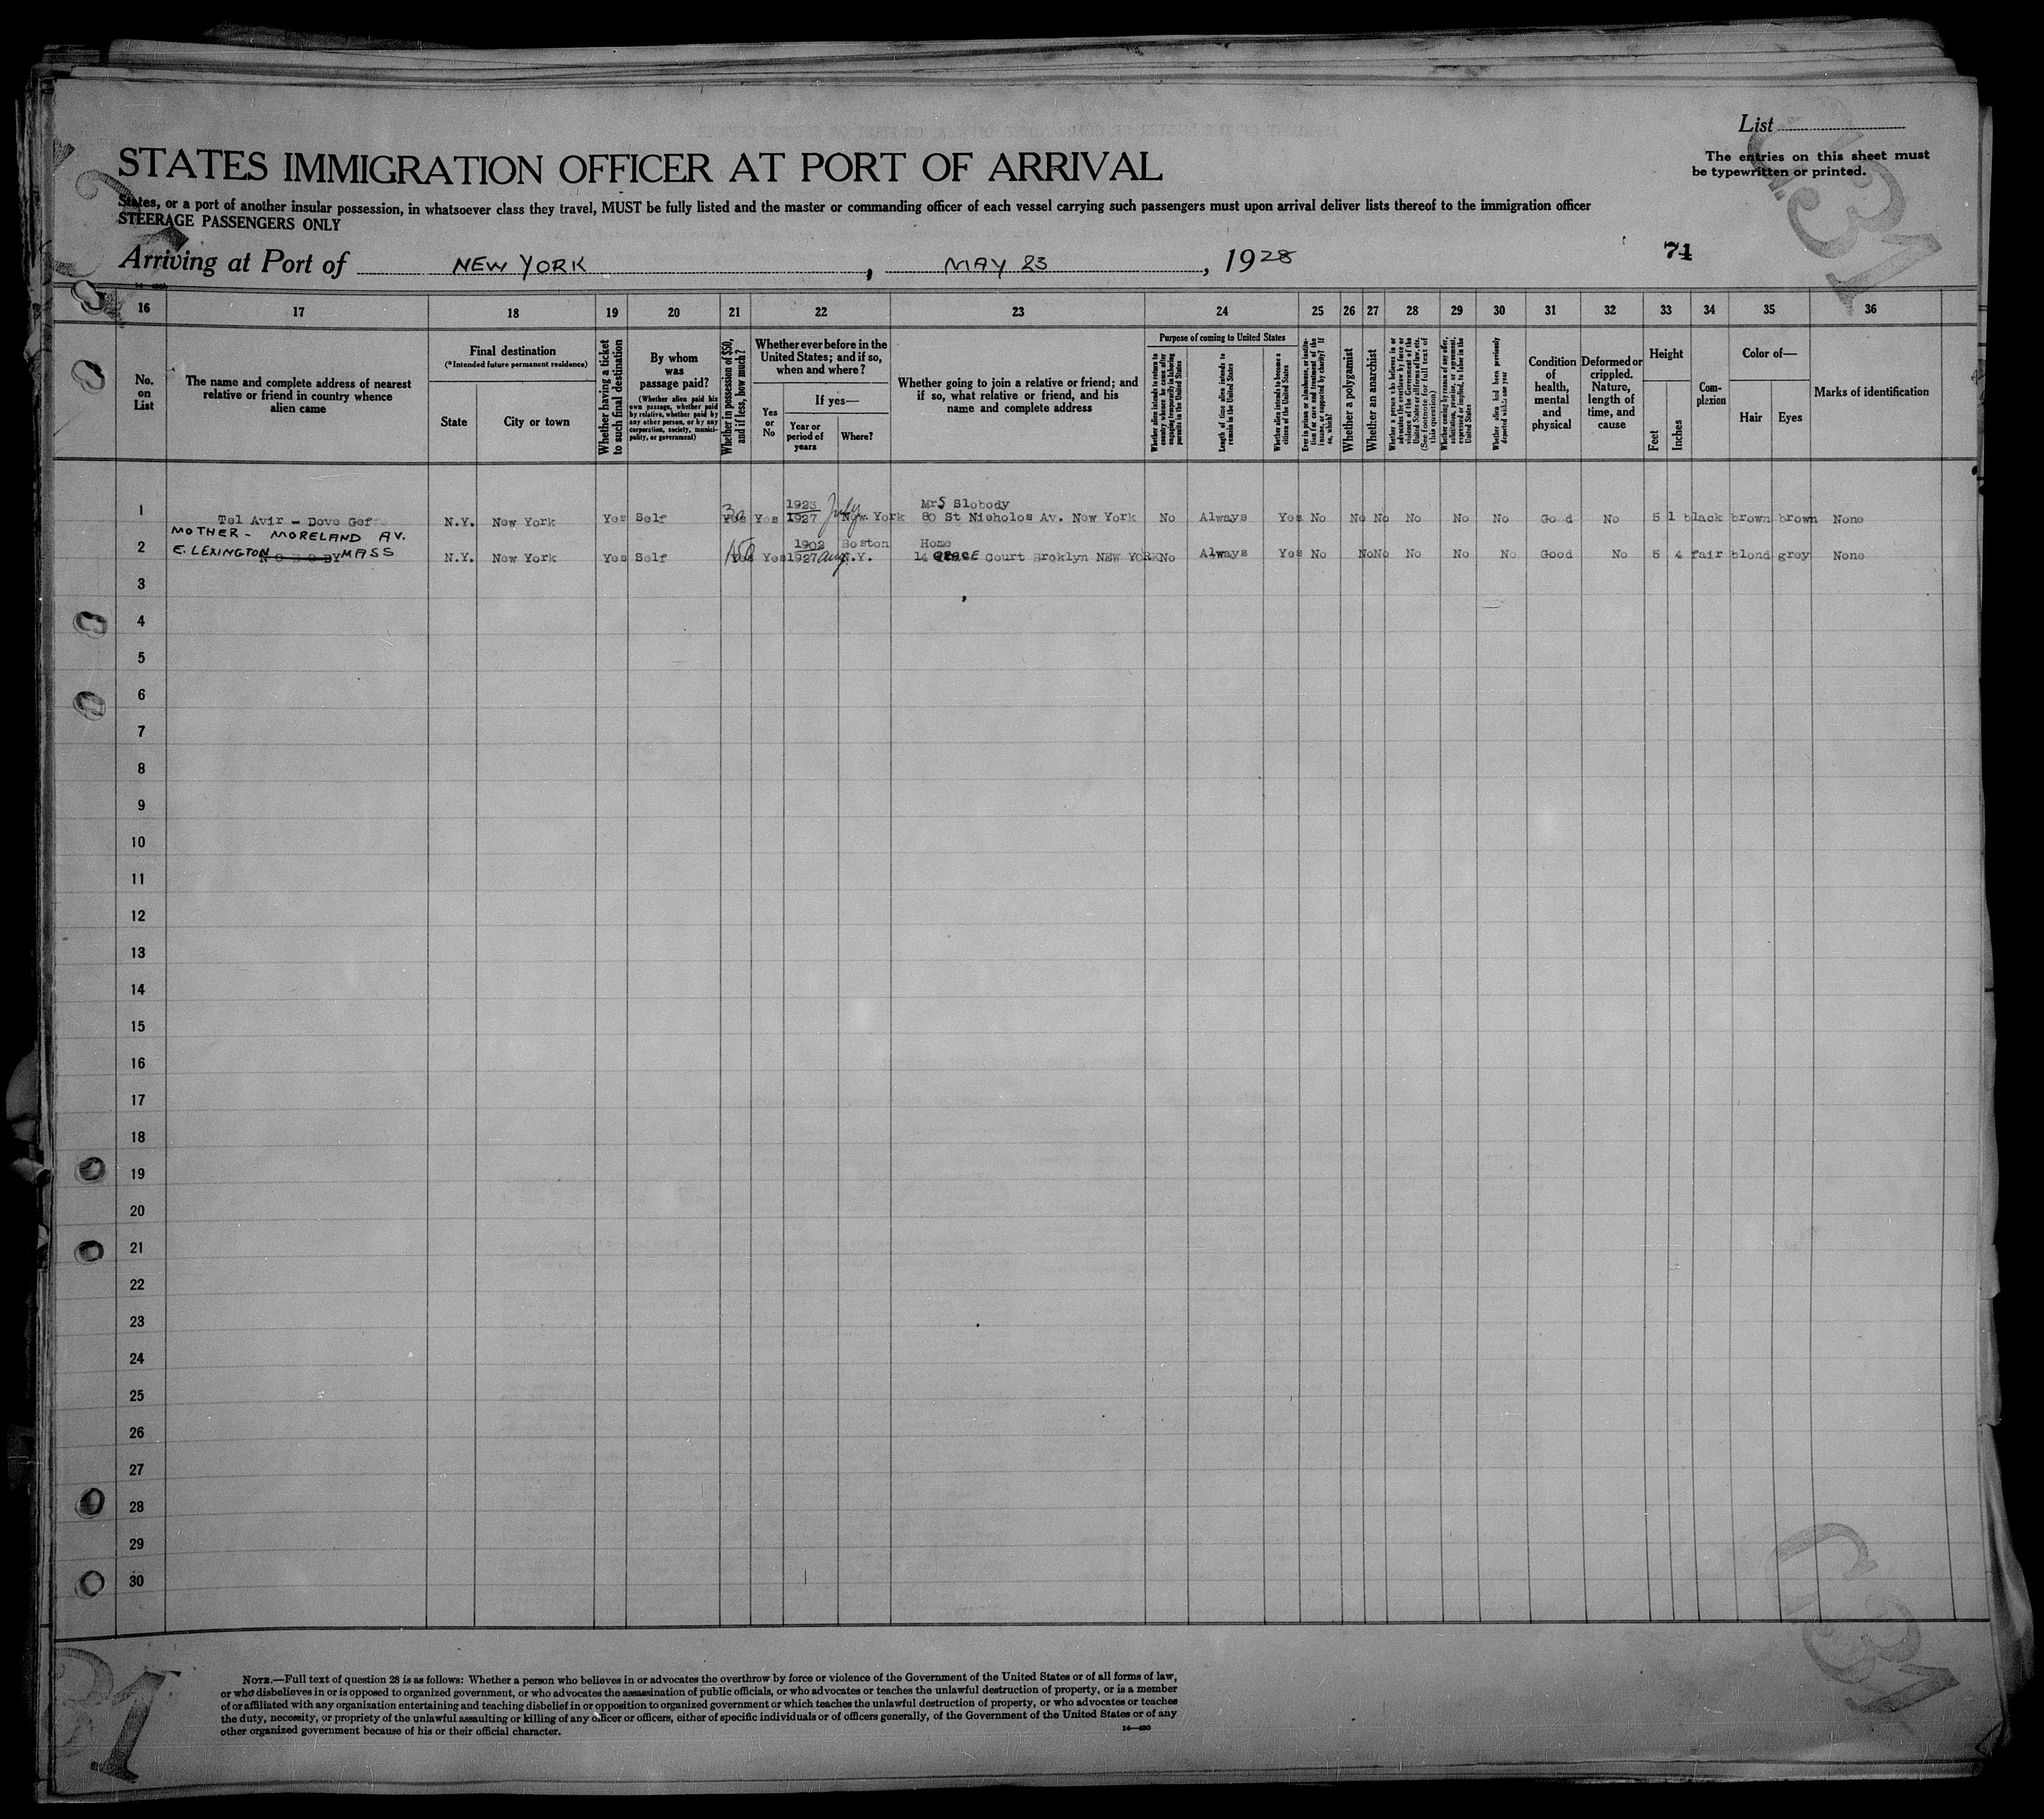 List
The entries on this sheet must
be typewritten or printed.
STATES IMMIGRATION OFFICER AT PORT OF ARRIVAL
States, or a port of another insular possession, in whatsoever class they travel, MUST be fully listed and the master or commanding officer of each vessel carrying such passengers must upon arrival deliver lists thereof to the immigration officer
STEERAGE PASSENGERS ONLY
Arriving at Port of NEW YORK, MAY 23, 1928
74
16 17 18 19 20 21 22 23 24 25 26 27 28 29 30 31 32 33 34 35 36
No.
on
List
The name and complete address of nearest
relative or friend in country whence
alien came
Final destination
(*Intended future permanent residence)
State
City or town
Whether having a ticket
to such final destination
By whom
was
passage paid?
(Whether alien paid his
own passage, whether paid
by relative, whether paid by
any other person, or by any
corporation, society, munici-
pality, or government)
Whether in possession of $50,
and if less, how much?
Whether ever before in the
United States; and if so,
when and where?
Yes
or
No
If yes—
Year or
period of
years
Where?
Whether going to join a relative or friend; and
if so, what relative or friend, and his
name and complete address
Purpose of coming to United States
Whether alien intends to return to
country whence he came after
engaging temporarily in laboring
pursuits in the United States
Length of time alien intends to
remain in the United States
Whether alien intends to become a
citizen of the United States
Ever in prison or almshouse, or institu-
tion for care and treatment of the
insane, or supported by charity? If
so, which?
Whether a polygamist
Whether an anarchist
Whether a person who believes in or
advocates the overthrow by force or
violence of the Government of the
United States or all forms of law, etc.
(See footnote for full text of
this question)
Whether coming by reason of any offer,
solicitation, promise, or agreement,
expressed or implied, to labor in the
United States
Whether alien had been previously
deported within one year
Condition
of
health,
mental
and
physical
Deformed or
crippled.
Nature,
length of
time, and
cause
Height
Feet
Inches
Com-
plexion
Color of—
Hair
Eyes
Marks of identification
1923 Mrs Slobody
1 Tel Avir - Dove N.Y. New York Yes Self 30 Yes Yes 1927 July New York 80 St Nicholos Av. New York No Always Yes No No No No No No Good No 5 1 black brown brown None
MOTHER - MORELAND AV.
1902 Boston Home
2 E. LEXINGTON NOBODY MASS N.Y. New York Yes Self 150 Yes Yes 1927 aug N.Y. 14 GRACE Court Broklyn NEW YORK No Always Yes No No No No No No Good No 5 4 fair blond grey None
3
4
5
6
7
8
9
10
11
12
13
14
15
16
17
18
19
20
21
22
23
24
25
26
27
28
29
30
NOTE.—Full text of question 28 is as follows: Whether a person who believes in or advocates the overthrow by force or violence of the Government of the United States or of all forms of law,
or who disbelieves in or is opposed to organized government, or who advocates the assassination of public officials, or who advocates or teaches the unlawful destruction of property, or is a member
of or affiliated with any organization entertaining and teaching disbelief in or opposition to organized government or which teaches the unlawful destruction of property, or who advocates or teaches
the duty, necessity, or propriety of the unlawful assaulting or killing of any officer or officers, either of specific individuals or of officers generally, of the Government of the United States or of any
other organized government because of his or their official character.
14—430